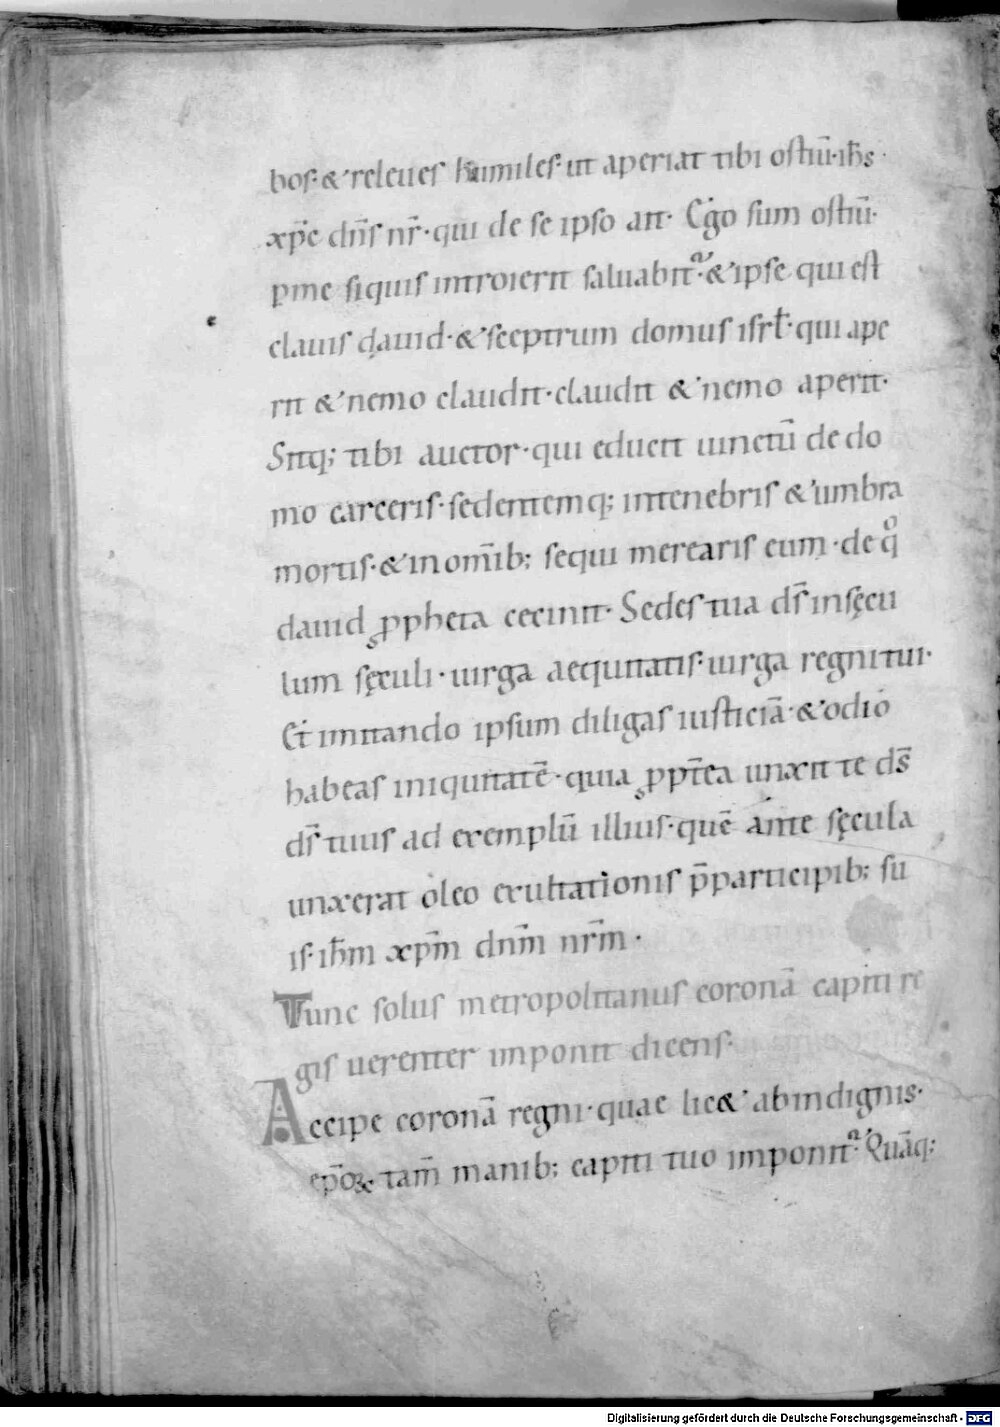 bos· & releues humiles· ut aperiat tibi ostiū· ih̄s
xp̄c dn̄s nr̄· qui de se ipso ait· Ego sum ostiū·
p me siquis introierit saluabitᷣ· & ipse qui est
clauis dauid· & sceptrum domus isrł· qui ape
rit & nemo claudit· claudit & nemo aperit·
Sitq; tibi auctor· qui educit uinctū de do
mo carceris· sedentemq; intenebris & umbra
mortis· & inom̄ib; sequi merearis eum· de qͦ
dauid ꝓpheta cecinit· Sedes tua ds̄ insęcu
lum sęculi· uirga aequitatis· uirga regni tui·
Et imitando ipsum diligas iusticiā· & odio
habeas iniquitatē· quia ꝓpt̄ea unxit te ds̄
ds̄ tuus ad exemplū illius· quē ante sęcula
unxerat oleo exultationis p̄participib; su
is· ih̄m xp̄m dn̄m nr̄m·
Tunc solus metropolitanus coronā capiti re
gis uerenter imponit dicens·
Accipe coronā regni· quae lic& ab indignis·
ep̄oꝝ tam̄ manib; capiti tuo imponitᷣ· Quāq;
Digitalisierung gefördert durch die Deutsche Forschungsgemeinschaft - DFG